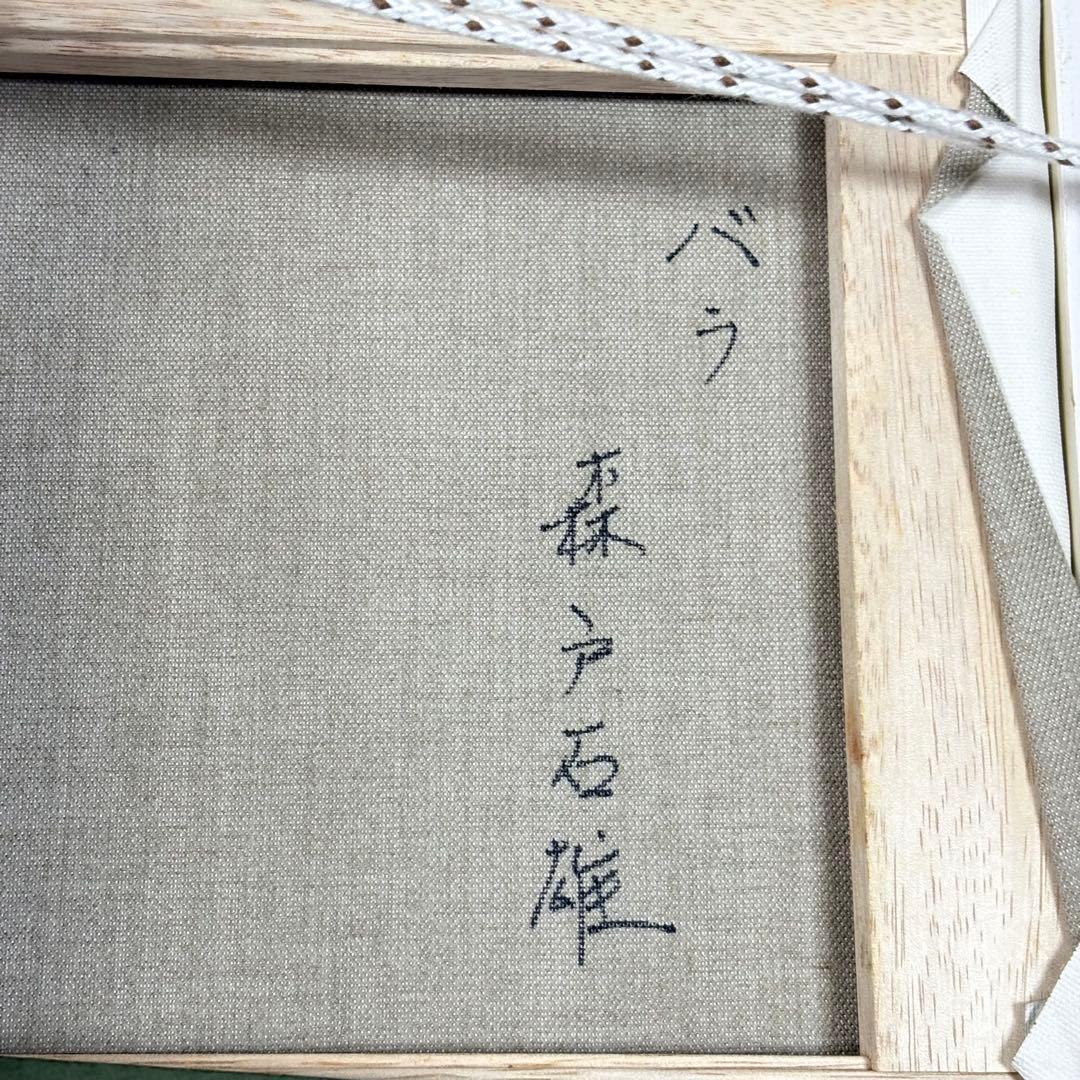 バラ
森戸石雄